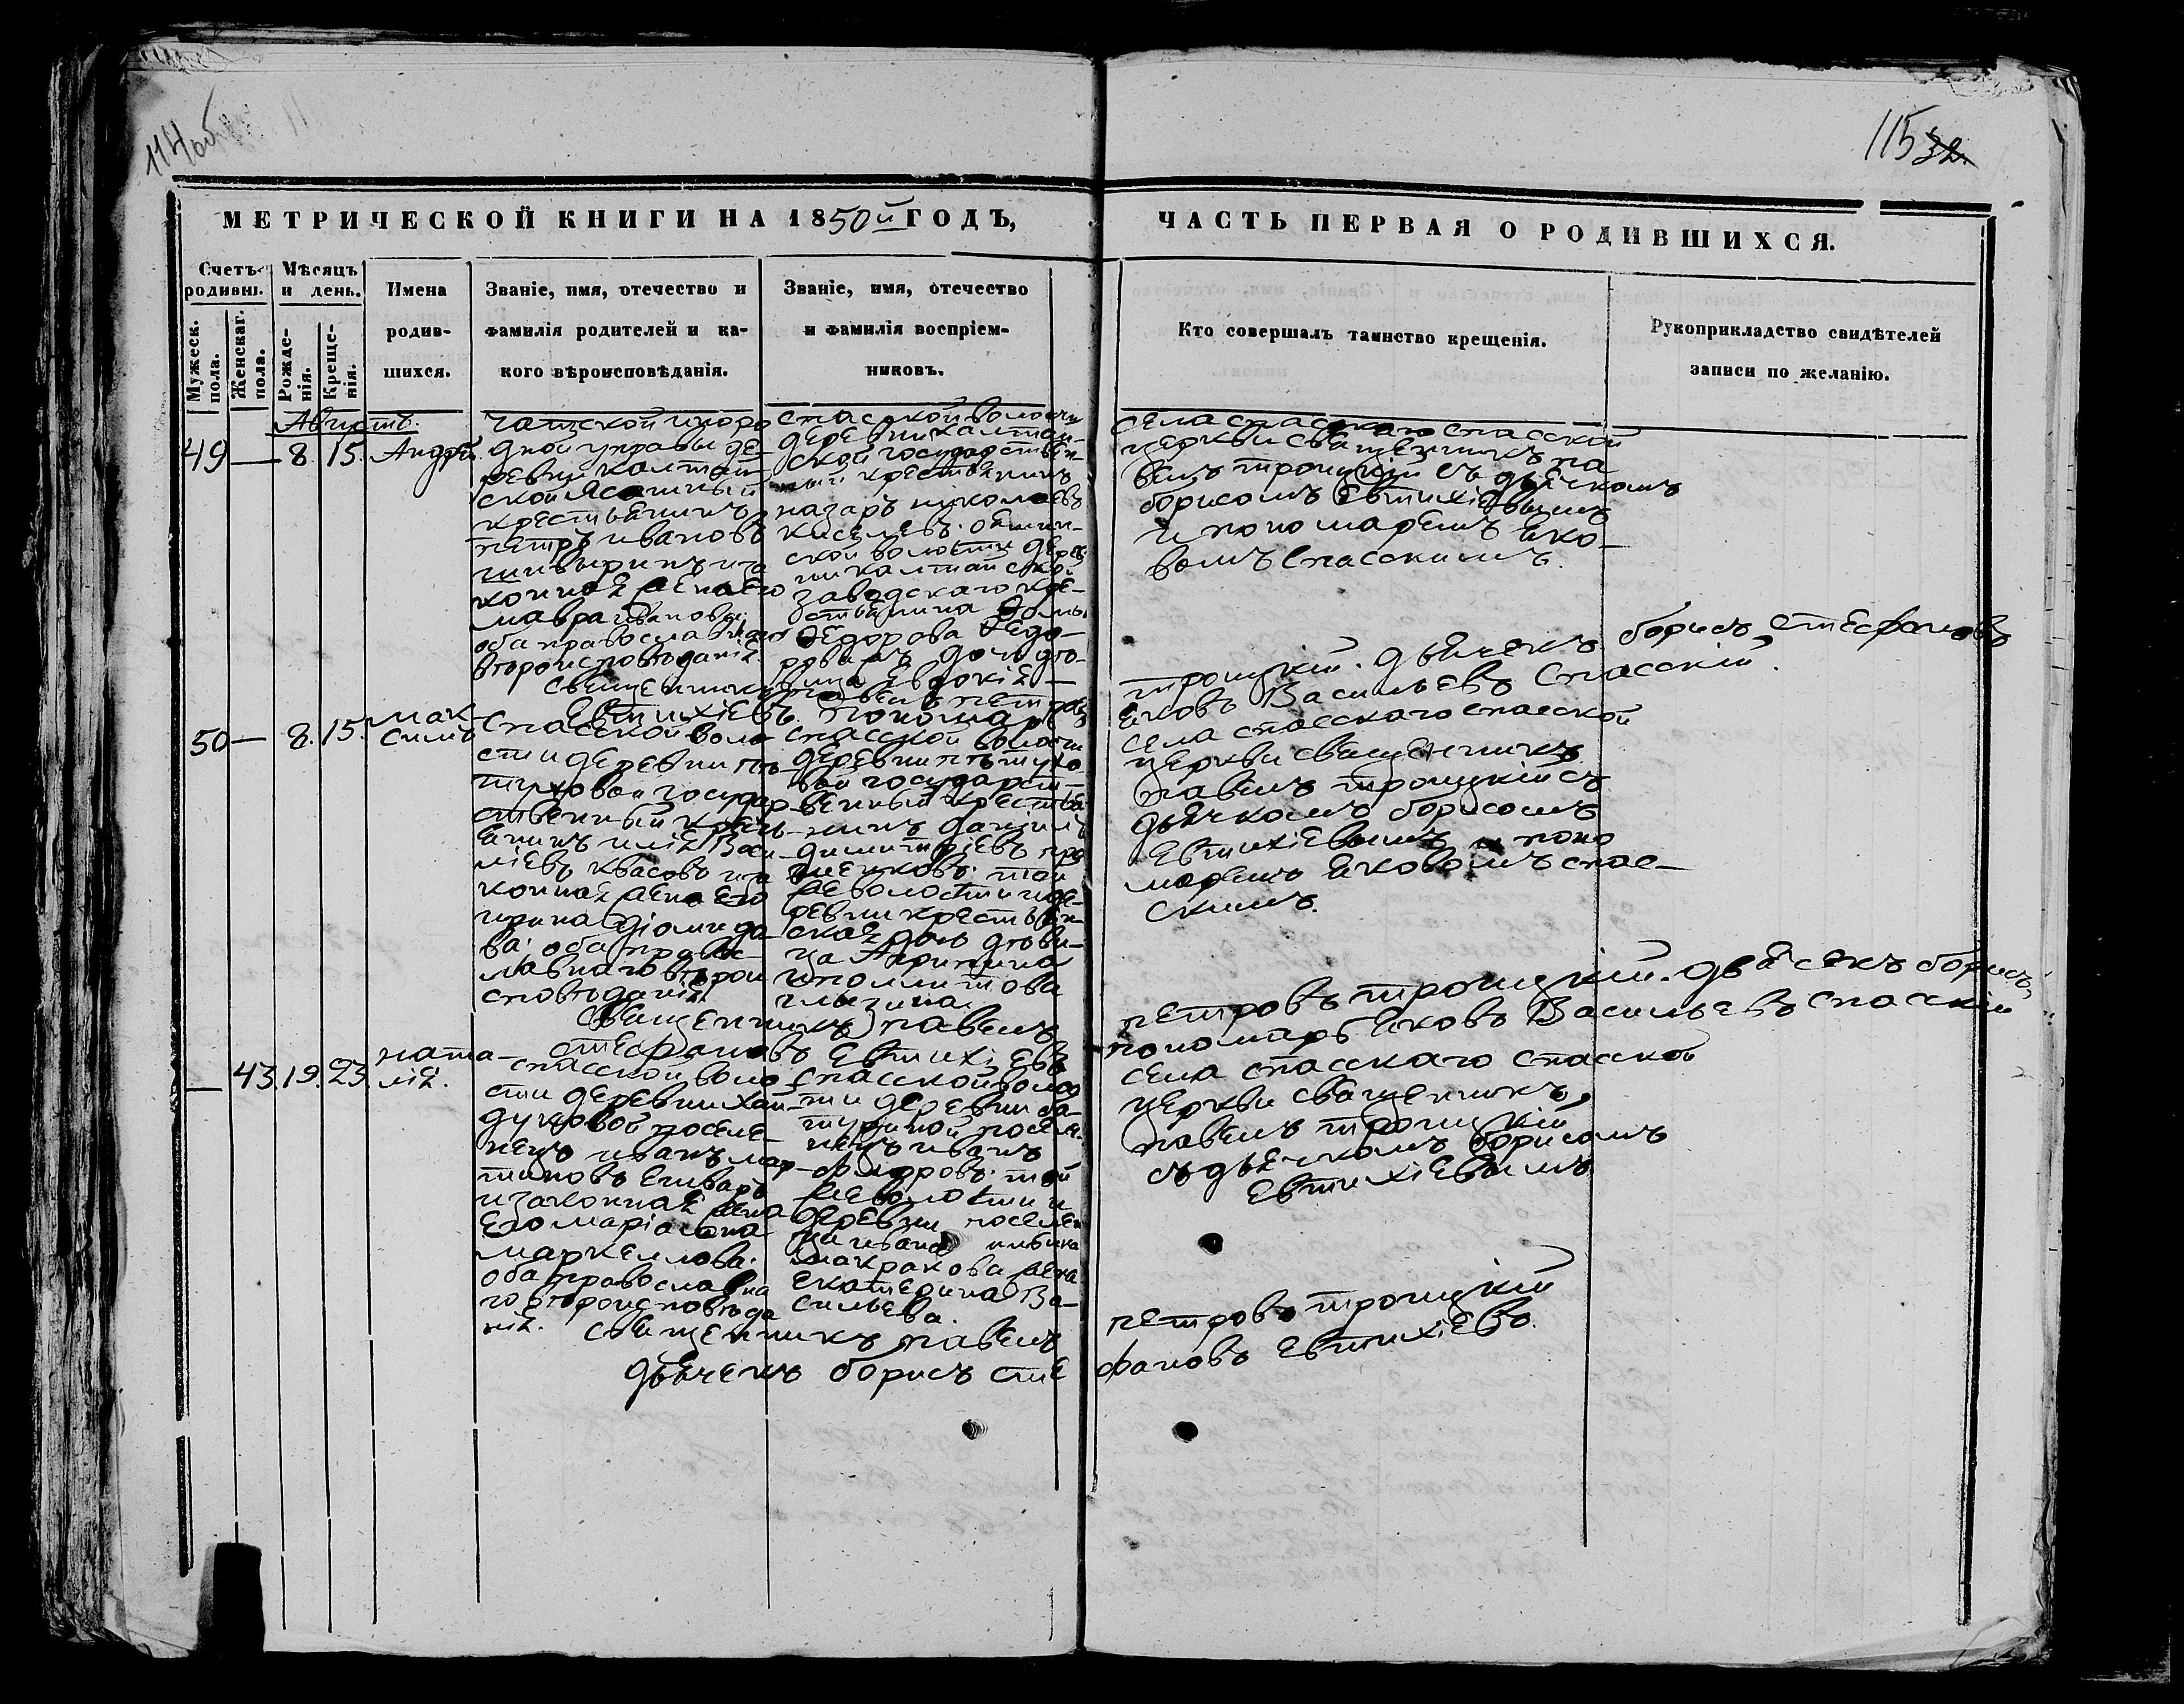 114об
115 32.
МЕТРИЧЕСКОЙ КНИГИ НА 1850й ГОДЪ,
ЧАСТЬ ПЕРВАЯ О РОДИВШИХСЯ.
Счетъ родивш.
Мужеск. пола.
Женскаг. пола.
Мѣсяцъ и день.
Рожде-
нія.
Креще-
нія.
Имена
родив-
шихся.
Званіе, имя, отечество и
фамилія родителей и ка-
кого вѣроисповѣданія.
Званіе, имя, отечество
и фамилія воспріем-
никовъ.
Кто совершалъ таинство крещенія.
Рукоприкладство свидѣтелей
записи по желанію.
Августъ.
49 — 8. 15. Андрей.
иноро
дной управы де-
ревни калтай-
ской Ясашный
крестьянинъ
петръ ивановъ
и за
конная жена его
мавра иванова
оба православнаго
вѣроисповѣданія.
спасской волости
деревни калтай-
ской государствен-
ный крестьянинъ
назаръ николаевъ
киселевъ.
ской волости дерев
ни калтайской
заводскаго кре-
стьянина
Ѳедорова Ѳедо-
дочь дѣ-
вица Евдокія
села спаскаго спасской
церкви священникъ па
велъ троицкій съ дьячкомъ
борисомъ Евтихіевымъ
и пономаремъ Яко-
вомъ Спасскимъ.
священникъ павелъ петровъ
троицкій. дьячекъ борисъ стефановъ
Евтихіевъ. пономарь
Яковъ Васильевъ Спасскій.
50 — 8. 15. Мак-
симъ
Спасской воло-
сти деревни пѣ-
туховой государ-
ственный кресть-
янинъ илія Васи-
ліевъ квасовъ и за
конная жена его
ирина Діомидо-
ва. оба правос-
лавнаго вѣрои
сповѣданія
спасской волости
деревни пѣтухо
вой государст-
венный крестья-
нинъ даніилъ
димитріевъ
той
же волости и де-
ревни крестьян-
ская дочь дѣви-
ца Акрипина
иполлитова
глызина.
села спасскаго спасской
церкви священникъ
павелъ троицкій съ
дьячкомъ борисомъ
Евтихіевымъ и поно
маремъ Яковомъ спас-
скимъ.
священникъ павелъ
петровъ троицкій. дьячекъ борисъ
стефановъ Евтихіевъ
пономарь Яковъ Васильевъ спасскій
— 43. 19. 23. ната-
лія.
спасской воло
сти деревни Хай-
дуковой поселе-
нецъ иванъ мар-
тиновъ
и законная жена
его маріамна
маркеллова.
оба православна
го вѣроисповѣда
нія.
спасской волос
ти деревни ба-
туриной поселе-
нецъ иванъ
Ѳедоровъ. той
же волости и
деревни поселен
ца ивана
макракова жена
екатерина Ва-
сильева.
села спасскаго спасской
церкви священникъ
павелъ троицкій
съ дьячкомъ борисомъ
Евтихіевымъ
священникъ павелъ
петровъ троицкій
дьячекъ борисъ сте
фановъ Евтихіевъ.